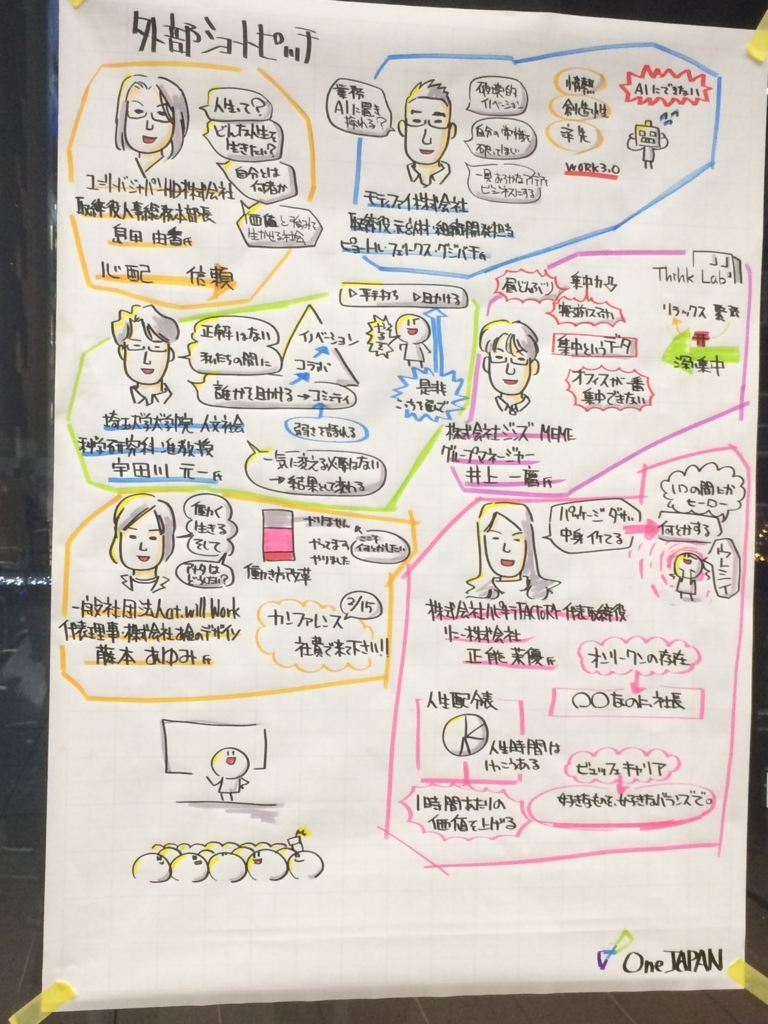 外部ショートピッチ
人生って?
どんな人生を
生きたい?
自分とは
何者か
価値と強みで
生かせる社会
ユニリーバ・ジャパンHD株式会社
取締役人事総務本部長
島田 由香氏
心配 信頼
業務
AIに置き
換れる?
破壊的
イノベーション
自分の常識を
破ってほしい
一見おろかなアイデアを
ビジネスにする
情熱
創造性
率先
WORK3.0
AIにできない
モティファイ株式会社
取締役 元Google 組織開発担当
ピョートル・フェリクス・グジバチ氏
正解はない
私たちの間に
誰かを助ける→コミュニティ
コラボ
イノベーション
弱さで語れる
▷手をあげる ▷助ける
やるぞ
是非
こっち選んで
一気に変える必要ない
→結果として変わる
埼玉大学大学院 人文社会
科学研究科・准教授
宇田川 元一氏
Think Lab
集中力
集中というデータ
オフィスが一番
集中できない
リラックス 緊張
深い集中
株式会社ジンズ MEME
グループマネージャー
井上 一鷹氏
働く
生きる
そして
アナタは
どうしたい?
やりません
やってます
やりました
ここを
何とかしたい
働き方改革
一般社団法人at Will Work
代表理事・株式会社お金のデザイン
藤本 あゆみ氏
2/15
カンファレンス
社費で来て下さい!!
パッケージ ダサい
中身イケてる
何とかする
いつの間にか
ヒーロー
株式会社ハピキラFACTORY 代表取締役
ソニー株式会社
正能 茉優氏
オンリーワンの存在
〇〇なのに社長
人生配分表
人生時間は
けっこうある
1時間あたりの
価値を上げる
ビュッフェキャリア
好きなものを、好きなバランスで。
One JAPAN